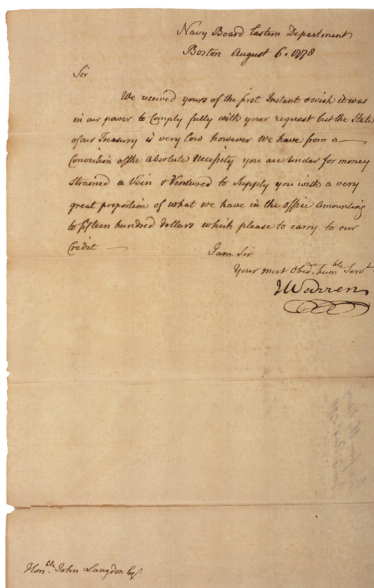 Navy Board Eastern Department
Boston August 6. 1778
Sir
We received yours of the first Instant & wish it was
in our power to Comply fully with your request but the State
of our Treasury is very low however We have from a
Conviction of the absolute Necessity you are under for money
Strained a Vein & Ventured to Supply you with a very
great proportion of what we have in the office amounting
to fifteen hundred dollars which please to carry to our
Credit —
I am Sir
Your most Obedt. humble Servt
J Warren
Honble. John Langdon Esqr.